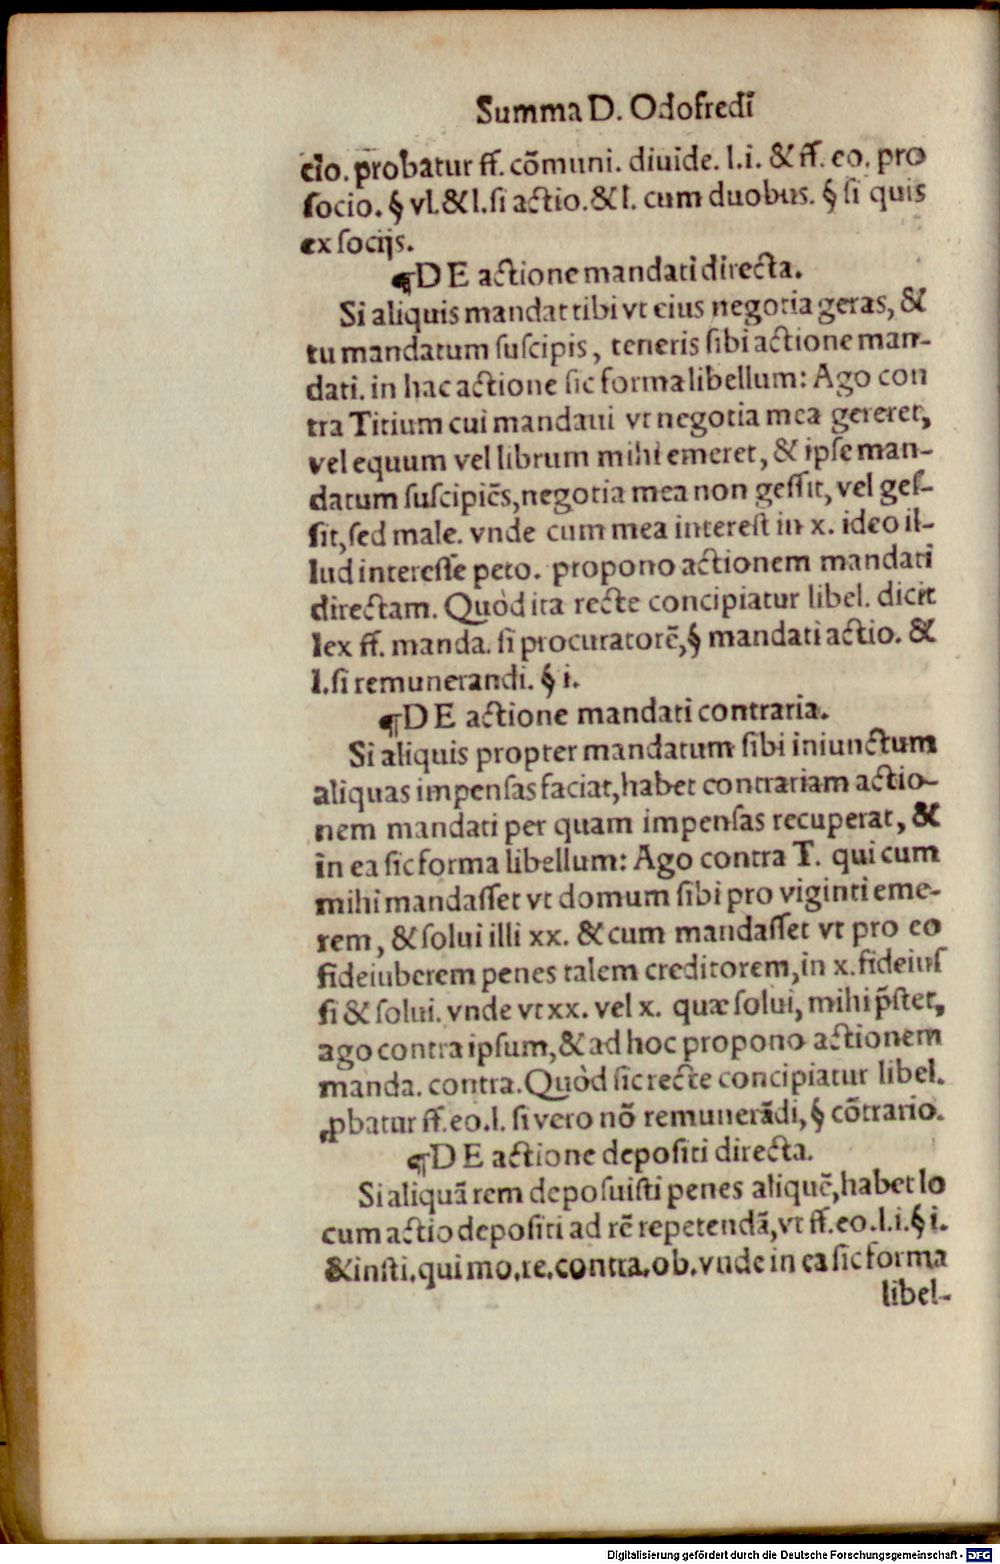 Summa D. Odofredi
cio. probatur ff. cõmuni. diuide. l.i. & ff. eo. pro
socio. § vl. & l. si actio. & l. cum duobus. § si quis
ex socijs.
¶DE actione mandati directa.
Si aliquis mandat tibi vt eius negotia geras, &
tu mandatum suscipis, teneris sibi actione man-
dati. in hac actione sic forma libellum: Ago con
tra Titium cui mandaui vt negotia mea gereret,
vel equum vel librum mihi emeret, & ipse man-
datum suscipiẽs, negotia mea non gessit, vel ges-
sit, sed male. vnde cum mea interest in x. ideo il-
lud interesse peto. propono actionem mandati
directam. Quòd ita recte concipiatur libel. dicit
lex ff. manda. si procuratorẽ, § mandati actio. &
l. si remunerandi. § i.
¶DE actione mandati contraria.
Si aliquis propter mandatum sibi iniunctum
aliquas impensas faciat, habet contrariam actio-
nem mandati per quam impensas recuperat, &
in ea sic forma libellum: Ago contra T. qui cum
mihi mandasset vt domum sibi pro viginti eme-
rem, & solui illi xx. & cum mandasset vt pro eo
fideiuberem penes talem creditorem, in x. fideius
si & solui. vnde vt xx. vel x. quæ solui, mihi p̃stet,
ago contra ipsum, & ad hoc propono actionem
manda. contra. Quòd sic recte concipiatur libel.
ꝓbatur ff. eo. l. si vero nõ remunerãdi, § cõtrario.
¶DE actione depositi directa.
Si aliquã rem deposuisti penes aliquẽ, habet lo
cum actio depositi ad rẽ repetendã, vt ff. eo. l.i. § i.
& insti. qui mo. re. contra. ob. vnde in ea sic forma
libel-
Digitalisierung gefördert durch die Deutsche Forschungsgemeinschaft - DFG